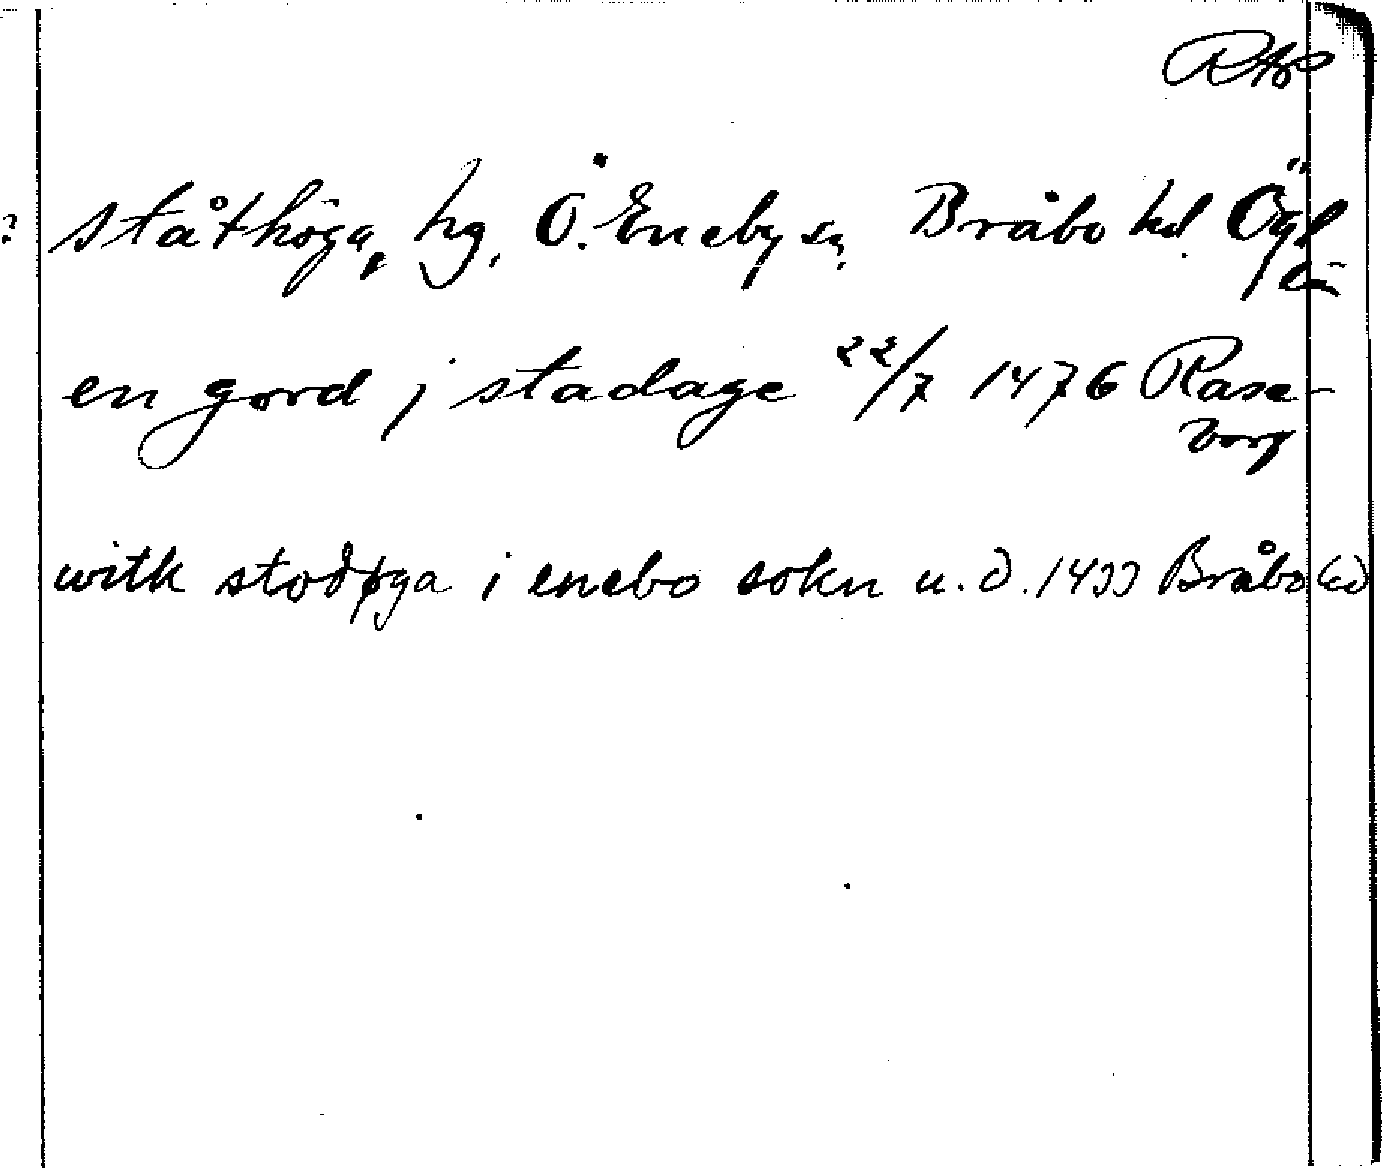 RAP
? Ståthöga, hg, Ö. Eneby sn, Bråbo hd Ögl
län
en gord j stadage 22/7 1476 Rase-
borg
witk stodøga i enebo sokn u.d. 1433 Bråbo hd